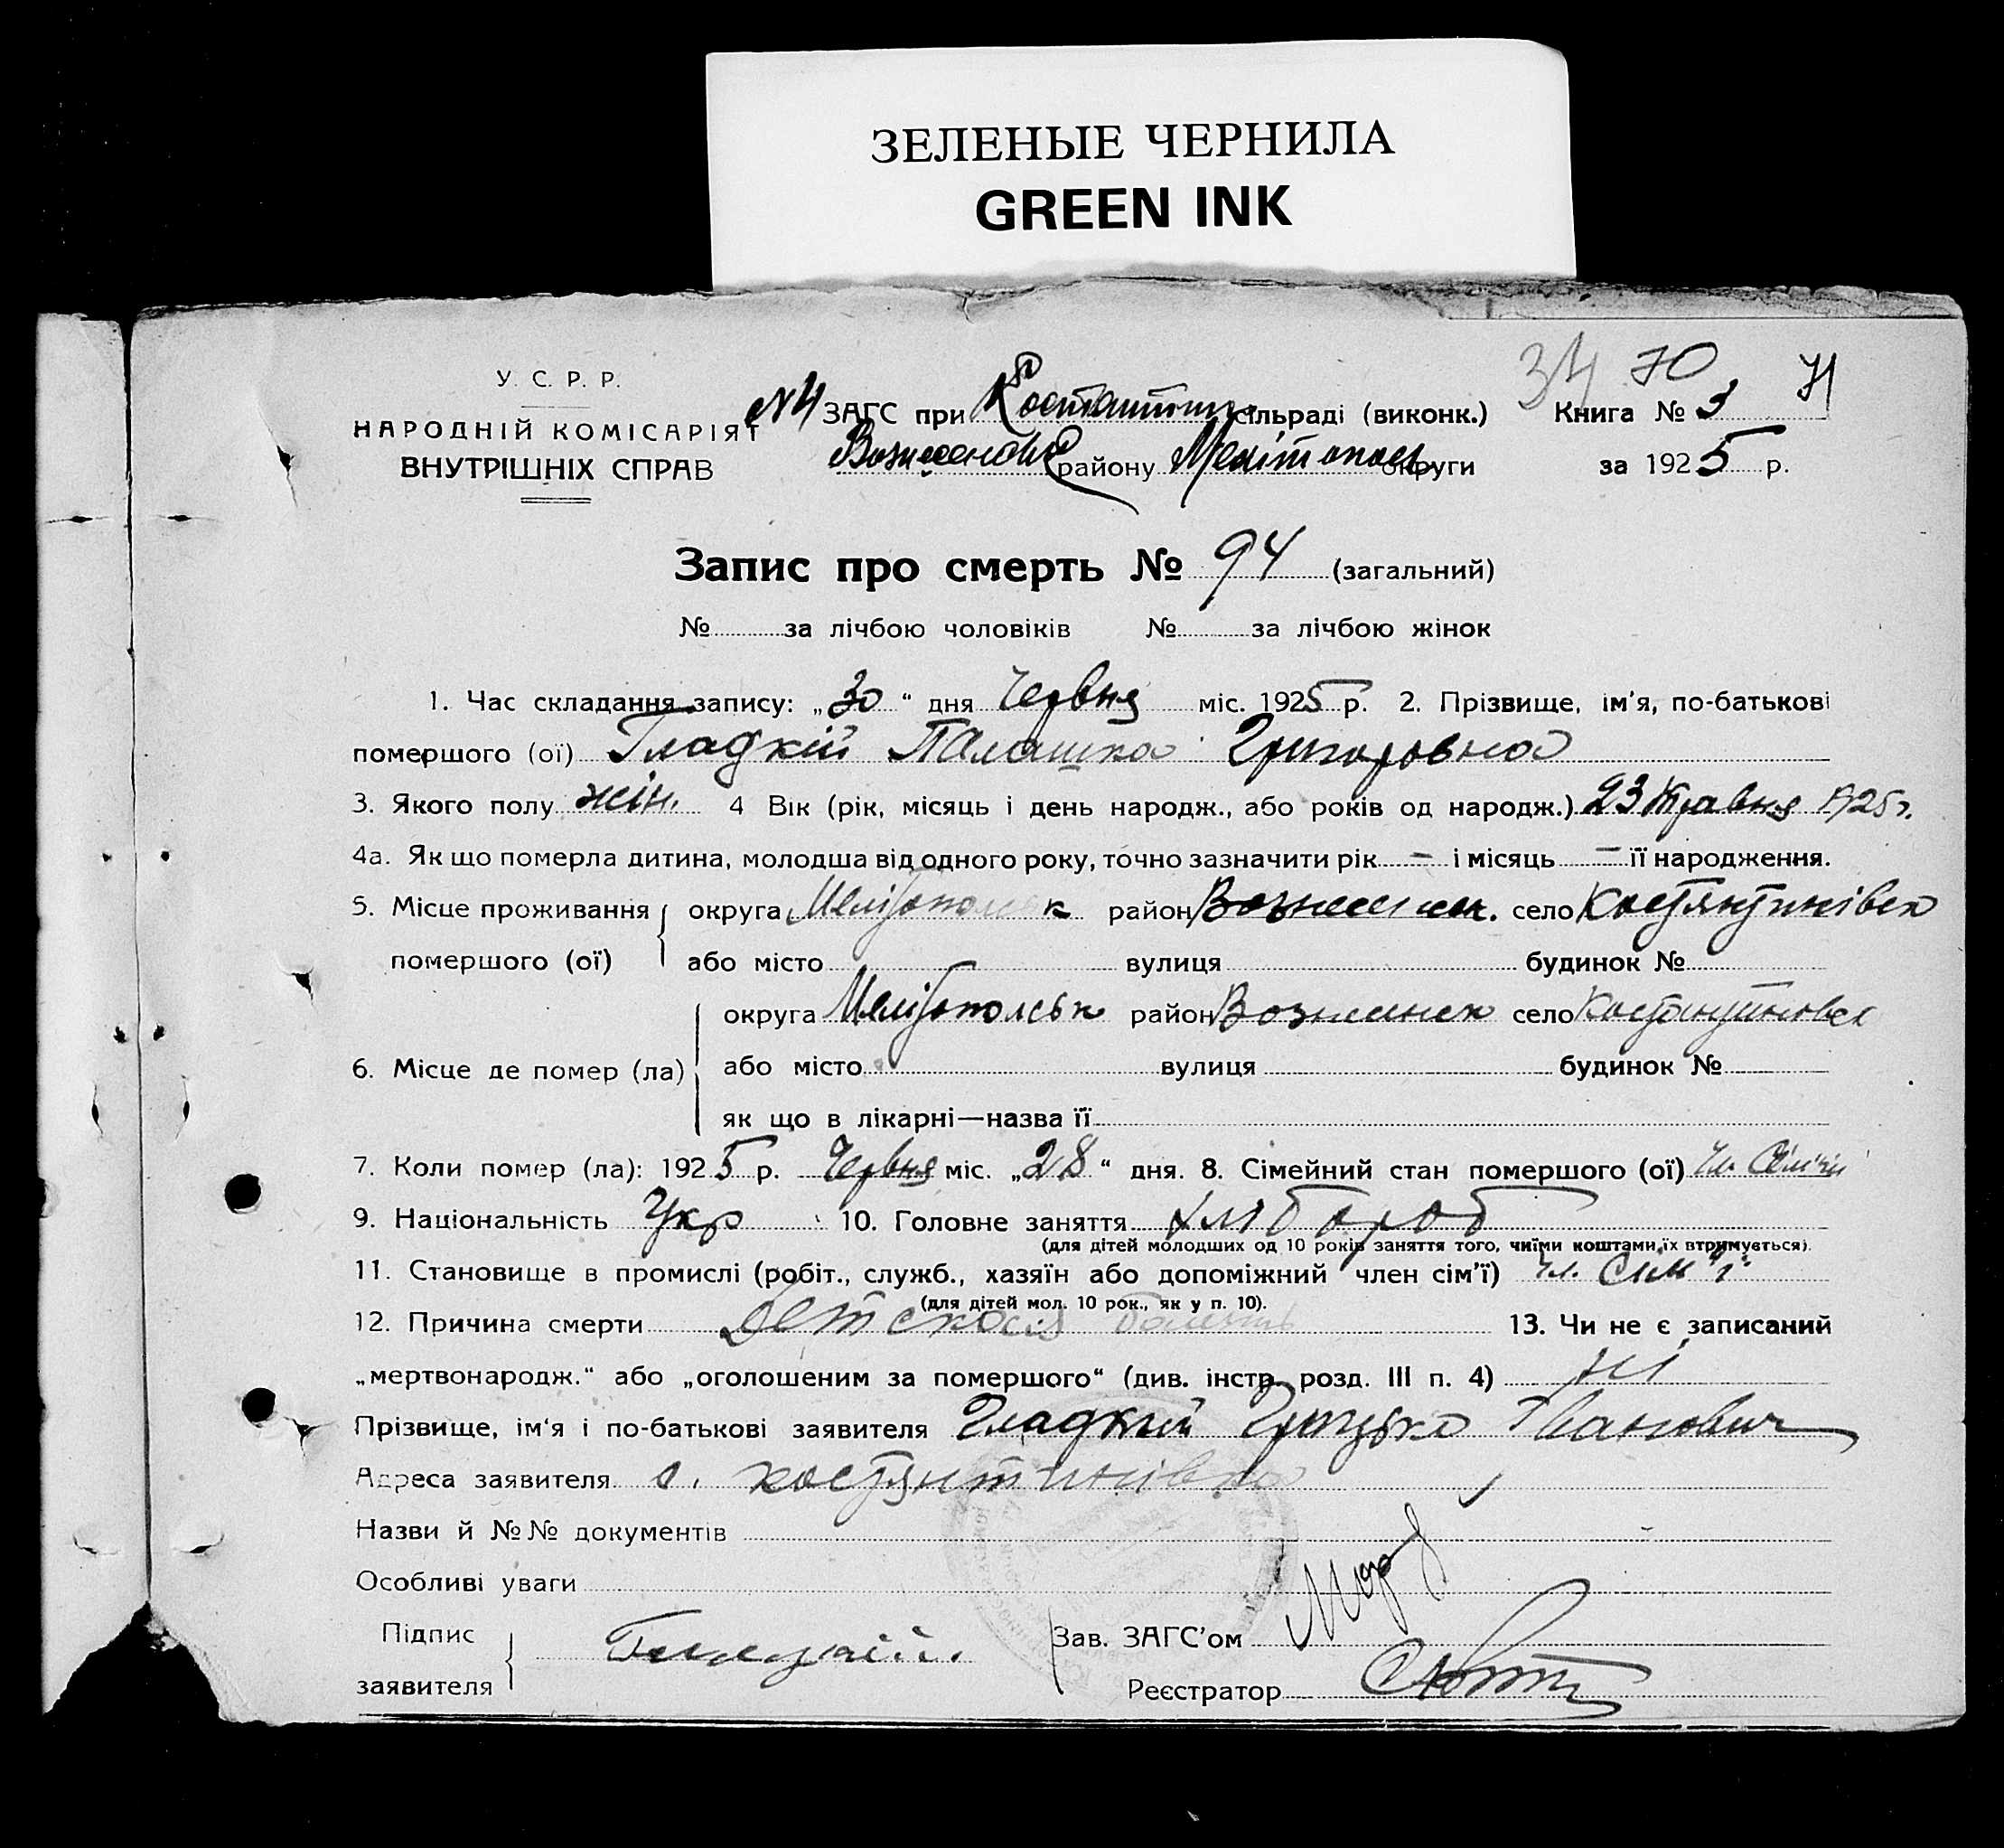 ЗЕЛЕНЫЕ ЧЕРНИЛА
GREEN INK
34 70 71
У. С. Р. Р.
НАРОДНІЙ КОМІСАРІЯТ
ВНУТРІШНІХ СПРАВ
№4 ЗАГС при Костантин. сільраді (виконк.) Книга № 3
району Мелітопол. округи за 1925 р.
Запис про смерть № 94 (загальний)
№ за лічбою чоловіків № за лічбою жінок
1. Час складання запису: „30“ дня Червня міс. 1925 р. 2. Прізвище, ім'я, по-батькові
помершого (ої) Гладкій Палашка Григоровна
3. Якого полу жін. 4 Вік (рік, місяць і день народж., або років од народж.) 23 Травня 1925 г.
4а. Як що померла дитина, молодша від одного року, точно зазначити рік — і місяць — її народження.
5. Місце проживання округа Мелітопольск район село Костянтинівка
помершого (ої) або місто вулиця будинок №
округа Мелітопольськ район село
6. Місце де помер (ла) або місто вулиця будинок №
як що в лікарні—назва її
7. Коли помер (ла): 1925 р. Червня міс. „28“ дня. 8. Сімейний стан помершого (ої) чл. сім'ї
9. Національність Укр 10. Головне заняття хлібороб
(для дітей молодших од 10 років заняття того, чиїми коштами їх втримується).
11. Становище в промислі (робіт., служб., хазяїн або допоміжний член сім'ї) чл. сім'ї
(для дітей мол. 10 рок., як у п. 10).
12. Причина смерти Детская болезнь 13. Чи не є записаний
„мертвонародж.“ або „оголошеним за помершого“ (див. інстр. розд. III п. 4) ні
Прізвище, ім'я і по-батькові заявителя Гладкий Грицько Іванович
Адреса заявителя с. Костянтинівка
Назви й №№ документів
Особливі уваги
Підпис
Зав. ЗАГС'ом
заявителя
Реєстратор